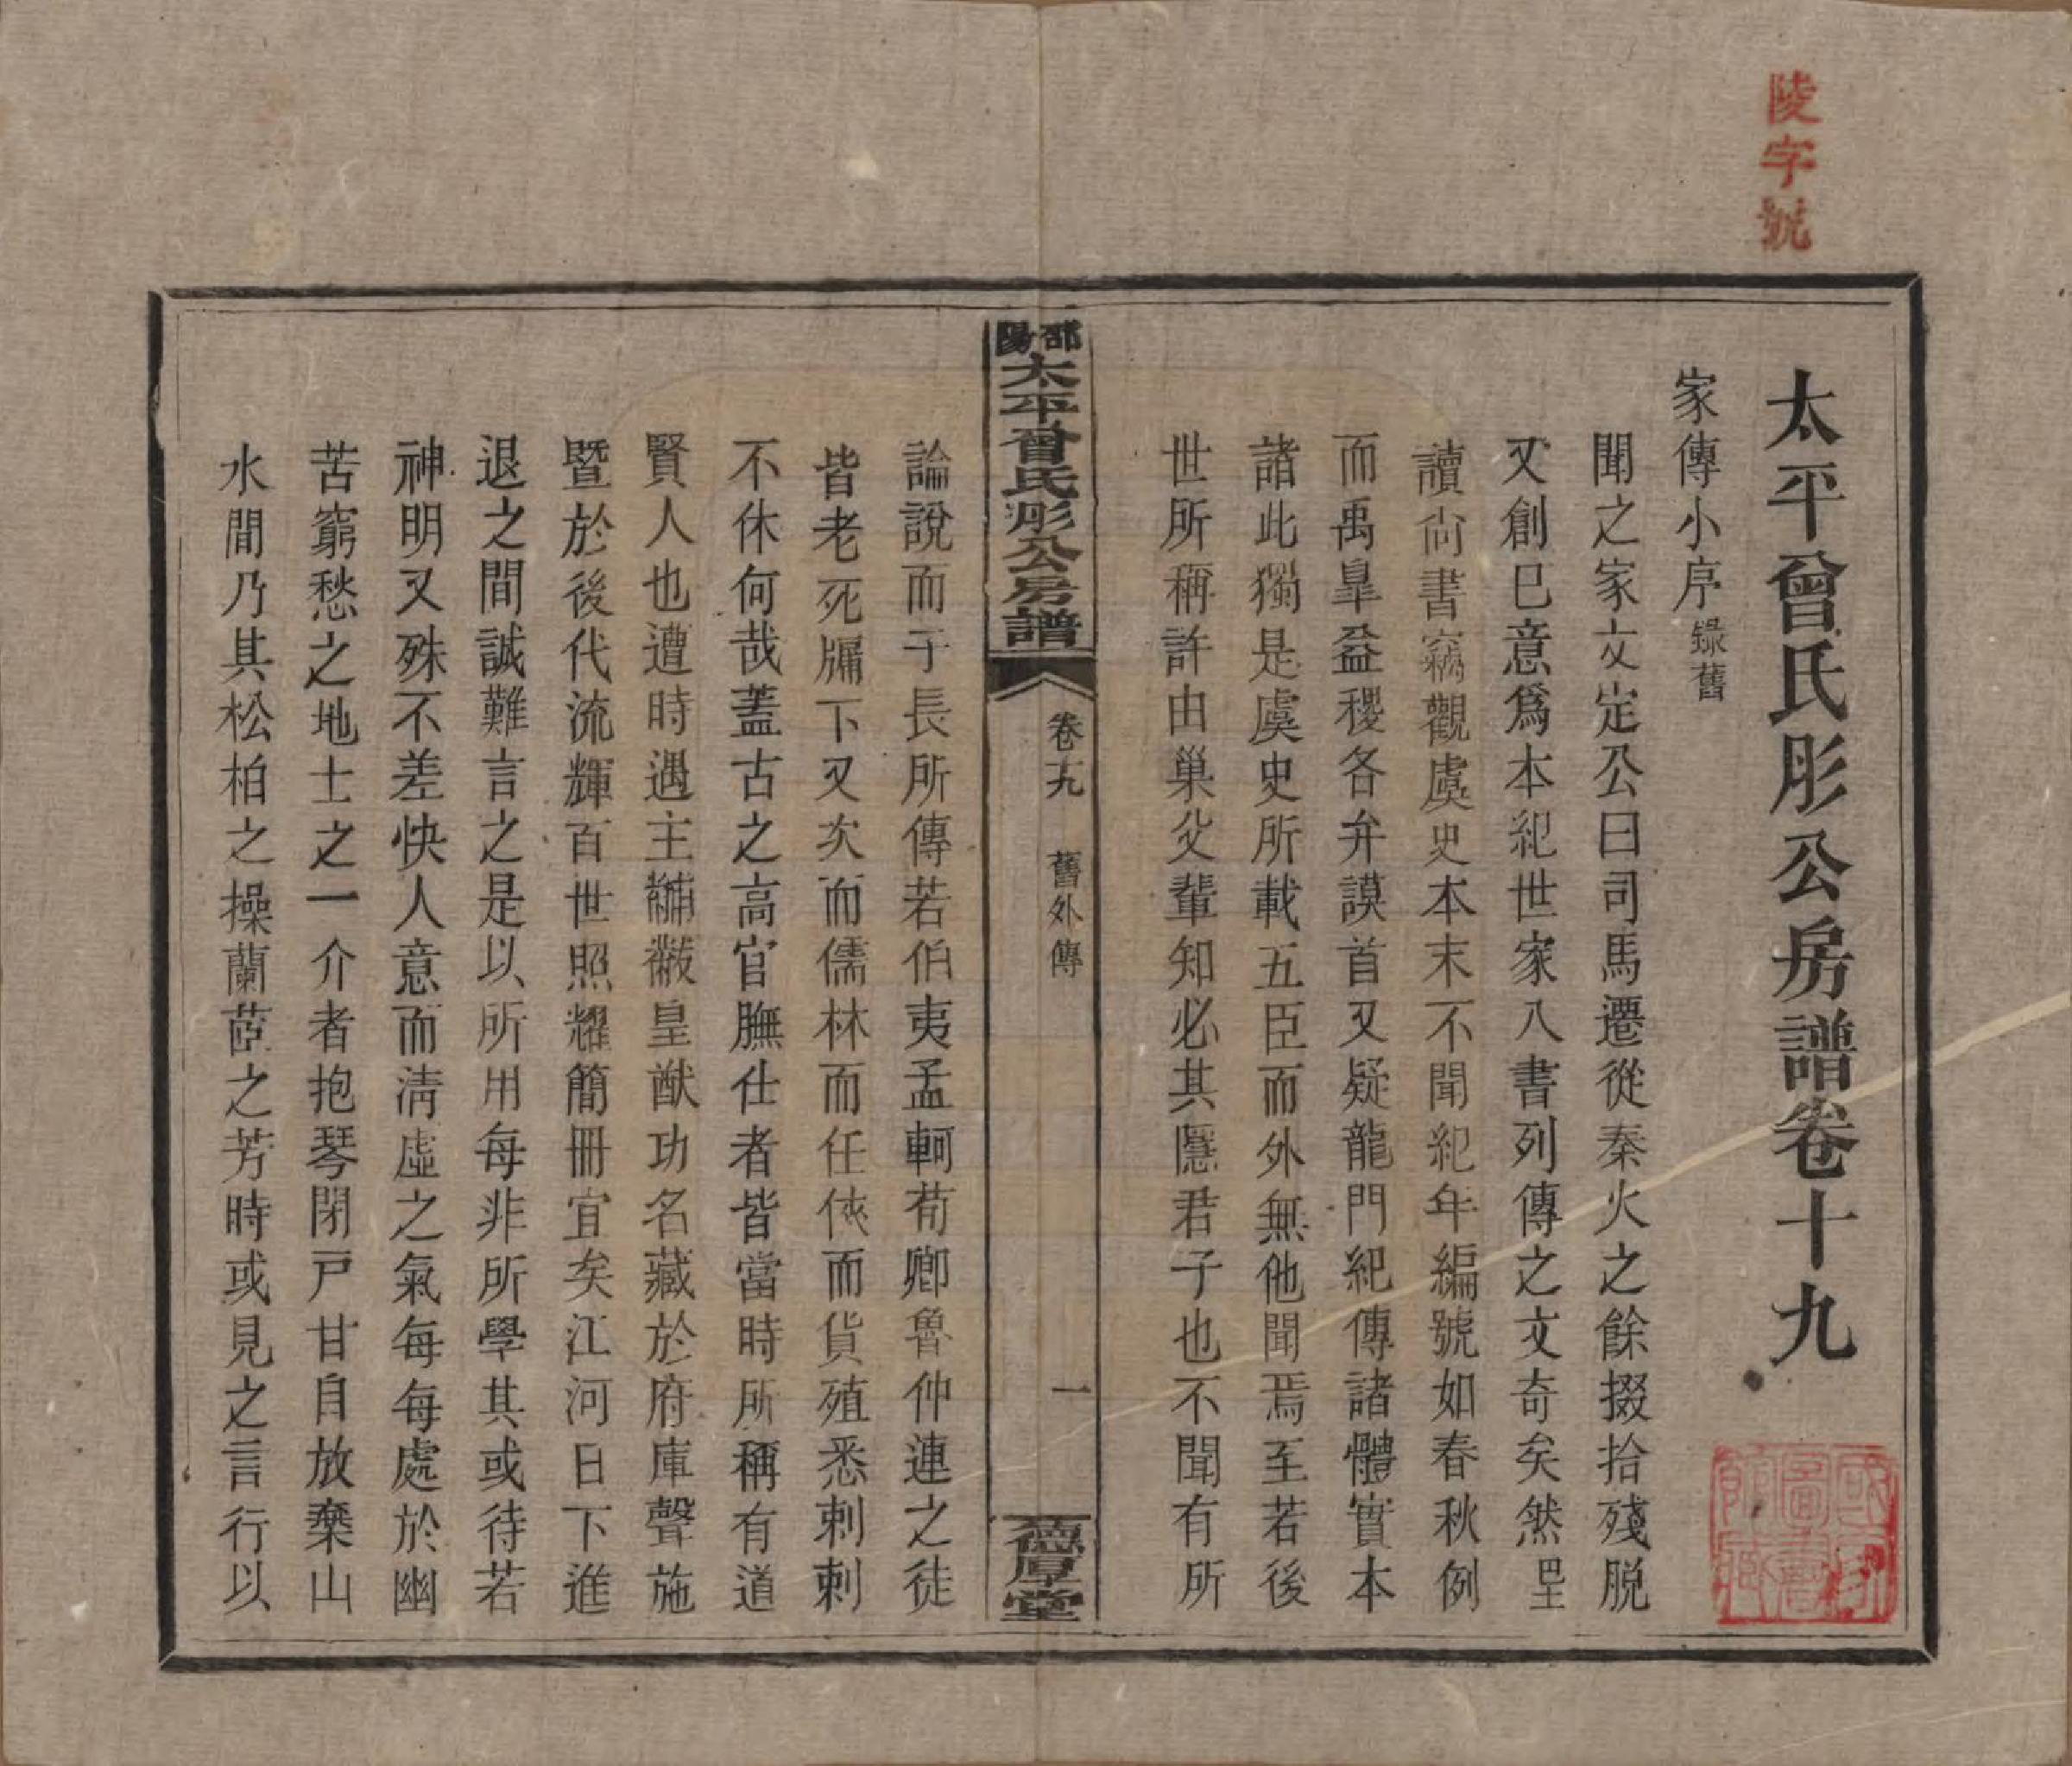 陵字號
太平曾氏彤公房譜卷十九
家傳小序 錄舊
聞之家文定公曰司馬遷從秦火之餘掇拾殘脫
又創巳意爲本紀世家八書列傳之文奇矣然
讀尙書竊觀虞史本末不聞紀年編號如春秋例
而禹臯益稷各弁謨首又疑龍門紀傳諸體實本
諸此獨是虞史所載五臣而外無他聞焉至若後
世所稱許由巢父輩知必其隱君子也不聞有所
邵陽太平曾氏彤公房譜
卷十九
舊外傳
一
德厚堂
論說而子長所傳若伯夷孟軻荀卿魯仲連之徒
皆老死牖下又次而儒林而任俠而貨殖悉剌剌
不休何哉蓋古之高官膴仕者皆當時所稱有道
賢人也遭時遇主黼黻皇猷功名藏於府庫聲施
暨於後代流輝百世照耀簡冊宜矣江河日下進
退之間誠難言之是以所用每非所學其或待若
神明又殊不差快人意而淸虛之氣每每處於幽
苦窮愁之地士之一介者抱琴閉戸甘自放棄山
水間乃其松柏之操蘭茝之芳時或見之言行以
國家圖書館藏